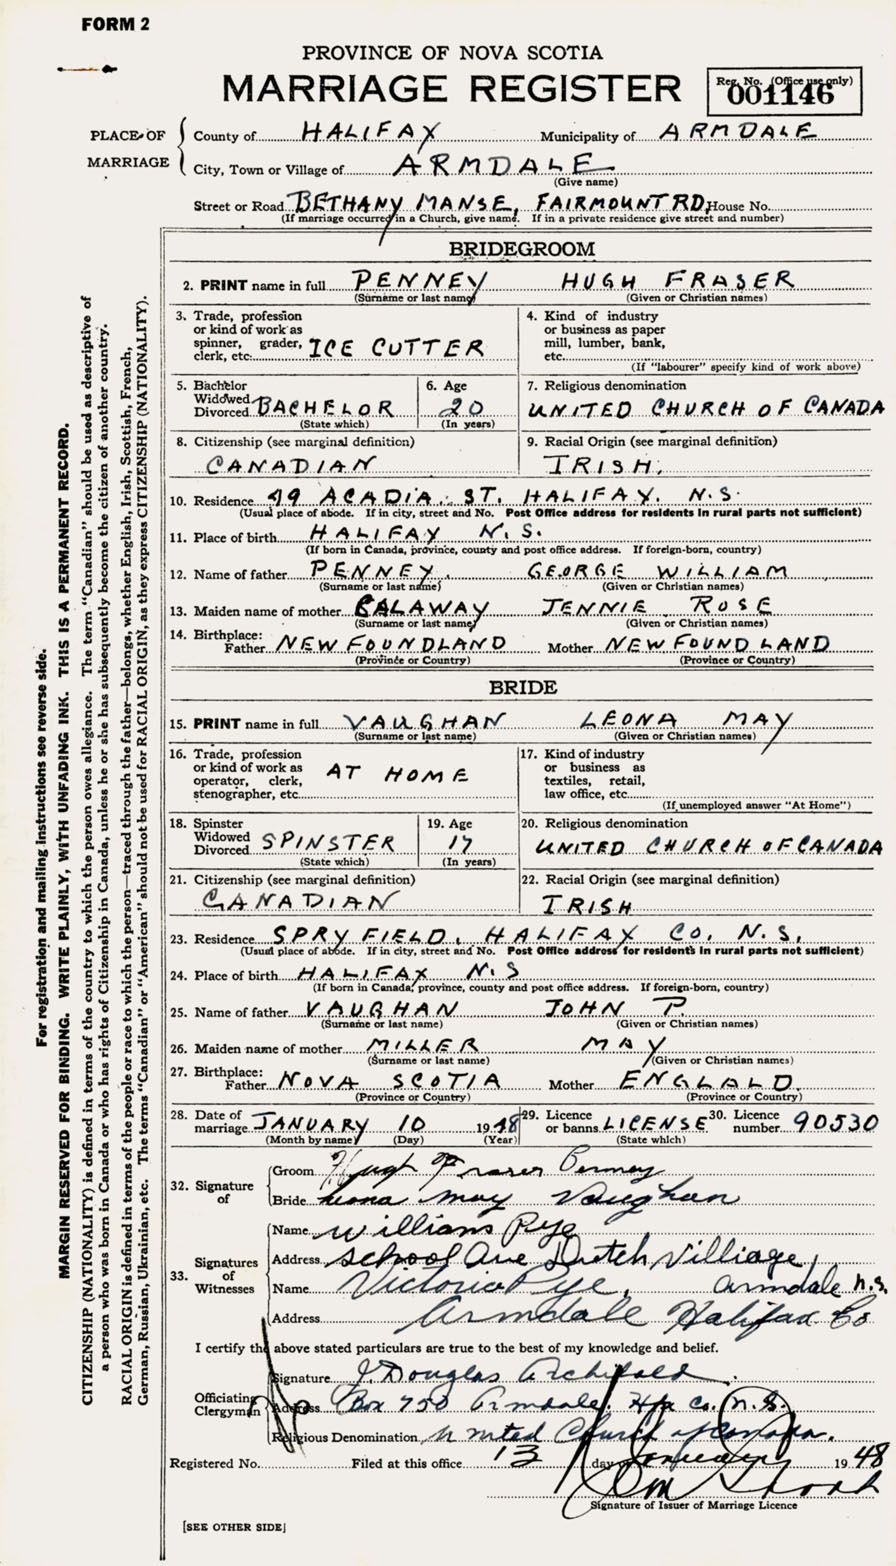 FORM 2
PROVINCE OF NOVA SCOTIA
MARRIAGE REGISTER
Reg. No. (Office use only)
001146
PLACE OF MARRIAGE
County of HALIFAX Municipality of ARMDALE
City, Town or Village of ARMDALE
(Give name)
Street or Road BETHANY MANSE, FAIRMOUNT RD, House No.
(If marriage occurred in a Church, give name. If in a private residence give street and number)
BRIDEGROOM
2. PRINT name in full PENNEY HUGH FRASER
(Surname or last name) (Given or Christian names)
3. Trade, profession
or kind of work as
spinner, grader,
clerk, etc. ICE CUTTER
4. Kind of industry
or business as paper
mill, lumber, bank,
etc.
(If "labourer" specify kind of work above)
5. Bachelor
Widowed
Divorced BACHELOR
(State which)
6. Age
20
(In years)
7. Religious denomination
UNITED CHURCH OF CANADA
8. Citizenship (see marginal definition)
CANADIAN
9. Racial Origin (see marginal definition)
IRISH.
10. Residence 49 ACADIA. ST. HALIFAX. N.S.
(Usual place of abode. If in city, street and No. Post Office address for residents in rural parts not sufficient)
11. Place of birth HALIFAX N.S.
(If born in Canada, province, county and post office address. If foreign-born, country)
12. Name of father PENNEY. GEORGE WILLIAM
(Surname or last name) (Given or Christian names)
13. Maiden name of mother CALAWAY JENNIE ROSE
(Surname or last name) (Given or Christian names)
14. Birthplace:
Father NEWFOUNDLAND Mother NEWFOUNDLAND
(Province or Country) (Province or Country)
BRIDE
15. PRINT name in full VAUGHAN LEONA MAY
(Surname or last name) (Given or Christian names)
16. Trade, profession
or kind of work as
operator, clerk,
stenographer, etc. AT HOME
17. Kind of industry
or business as
textiles, retail,
law office, etc.
(If unemployed answer "At Home")
18. Spinster
Widowed
Divorced SPINSTER
(State which)
19. Age
17
(In years)
20. Religious denomination
UNITED CHURCH OF CANADA
21. Citizenship (see marginal definition)
CANADIAN
22. Racial Origin (see marginal definition)
IRISH
23. Residence SPRYFIELD, HALIFAX CO. N.S.
(Usual place of abode. If in city, street and No. Post Office address for residents in rural parts not sufficient)
24. Place of birth HALIFAX N.S
(If born in Canada, province, county and post office address. If foreign-born, country)
25. Name of father VAUGHAN JOHN P.
(Surname or last name) (Given or Christian names)
26. Maiden name of mother MILLER MAY
(Surname or last name) (Given or Christian names)
27. Birthplace:
Father NOVA SCOTIA Mother ENGLALD.
(Province or Country) (Province or Country)
28. Date of
marriage JANUARY 10 1948
(Month by name) (Day) (Year)
29. Licence
or banns LICENSE
(State which)
30. Licence
number 90530
32. Signature of
Groom Hugh Fraser Penney
Bride Leona May Vaughan
33. Signatures of Witnesses
Name Willians Pye
Address School Ave Dutch Villiage,
Name Victoria Pye, Armdale N.S.
Address Armdale Halifax Co
I certify the above stated particulars are true to the best of my knowledge and belief.
Officiating Clergyman
Signature J. Douglas Archibald.
Address Box 750 Armdale. Hfx Co. N.S.
Religious Denomination United Church of Canada.
Registered No. Filed at this office 13 day January 1948
Signature of Issuer of Marriage Licence
[SEE OTHER SIDE]
For registration and mailing instructions see reverse side.
MARGIN RESERVED FOR BINDING. WRITE PLAINLY, WITH UNFADING INK. THIS IS A PERMANENT RECORD.
CITIZENSHIP (NATIONALITY) is defined in terms of the country to which the person owes allegiance. The term "Canadian" should be used as descriptive of
a person who was born in Canada or who has rights of Citizenship in Canada, unless he or she has subsequently become the citizen of another country.
RACIAL ORIGIN is defined in terms of the people or race to which the person—traced through the father—belongs, whether English, Irish, Scottish, French,
German, Russian, Ukrainian, etc. The terms "Canadian" or "American" should not be used for RACIAL ORIGIN, as they express CITIZENSHIP (NATIONALITY).